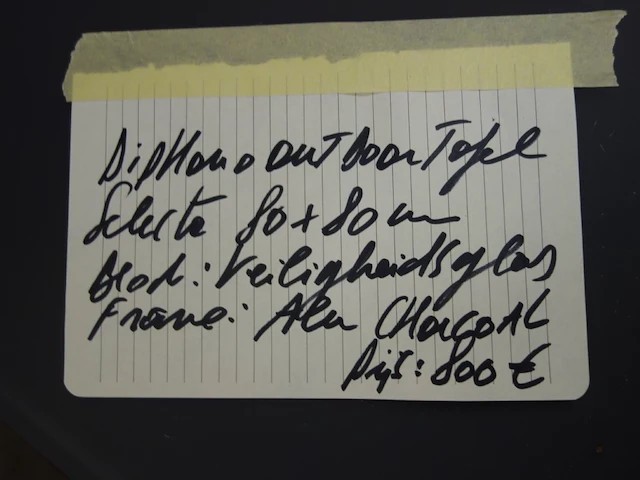 Diphano outdoor Tafel
Selecta 80 + 80 cm
Blad: Veiligheidsglas
Frame: Alu CHArcoAL
Prijs: 800 €